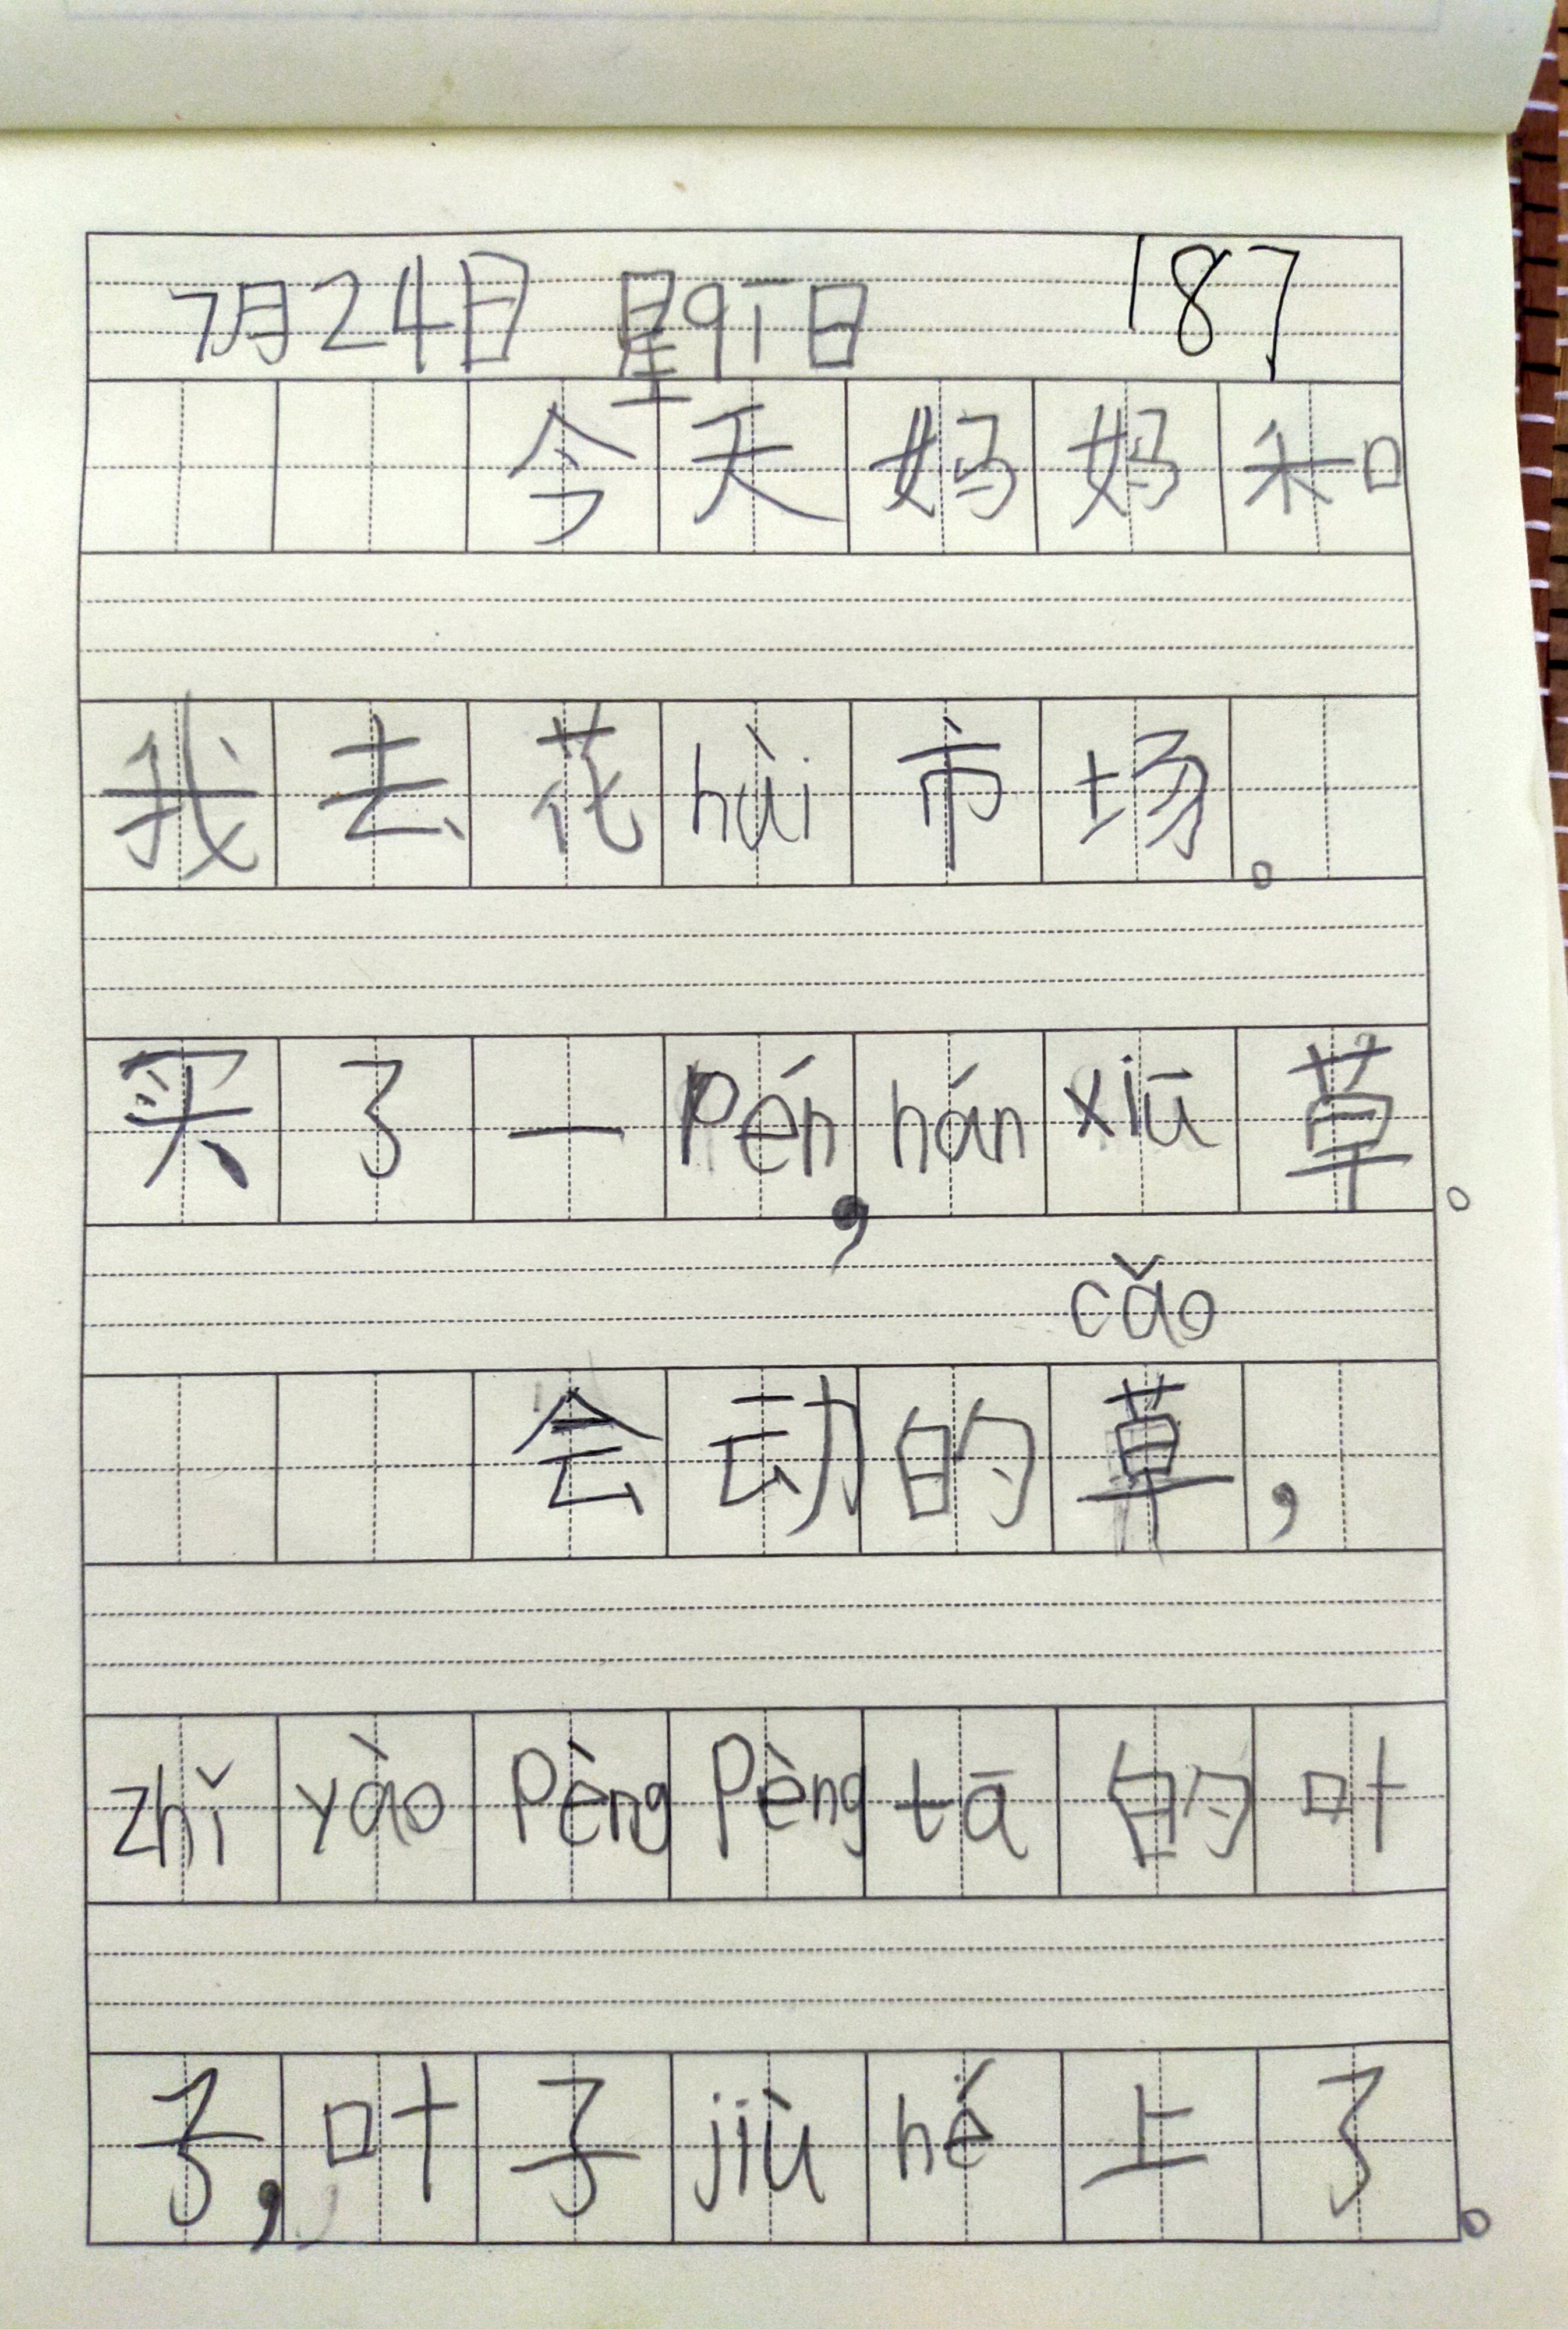 7月24日 星qī日 187
今天妈妈和
我去花hùi市场。
买了一pén，hán xiū 草。
cǎo
会动的草，
zhǐ yào pèng pèng tā 的叶
子，叶子 jiù hé 上了。